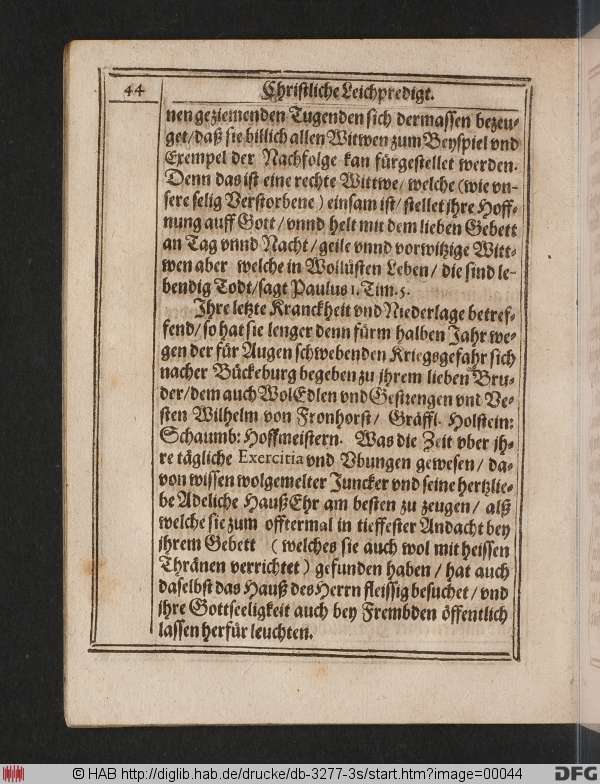 44
Christliche Leichpredigt.
nen geziemenden Tugenden sich dermassen bezeu-
get/daß sie billich allen Witwen zum Beyspiel vnd
Exempel der Nachfolge kan fürgestellet werden.
Denn das ist eine rechte Wittwe/ welche (wie vn-
sere selig Verstorbene) einsam ist/ stellet jhre Hoff-
nung auff Gott/ vnnd helt mit dem lieben Gebett
an Tag vnnd Nacht/ geile vnnd vorwitzige Witt-
wen aber welche in Wollüsten Leben/ die sind le-
bendig Todt/sagt Paulus 1. Tim. 5.
Jhre letzte Kranckheit vnd Niederlage betref-
fend/ so hat sie lenger denn fürm halben Jahr we-
gen der für Augen schwebenden Kriegsgefahr sich
nacher Bückeburg begeben zu jhrem lieben Bru-
der/dem auch WolEdlen vnd Gestrengen vnd Ve-
sten Wilhelm von Fronhorst/ Gräffl. Holstein:
Schaumb: Hoffmeistern. Was die Zeit vber jh-
re tägliche Exercitia vnd Vbungen gewesen/ da-
von wissen wolgemelter Juncker vnd seine hertzlie-
be Adeliche HaußEhr am besten zu zeugen/ alß
welche sie zum offtermal in tieffester Andacht bey
jhrem Gebett (welches sie auch wol mit heissen
Thränen verrichtet) gefunden haben/ hat auch
daselbst das Hauß des Herrn fleissig besuchet/ vnd
jhre Gottseeligkeit auch bey Frembden öffentlich
lassen herfür leuchten.
© HAB http://diglib.hab.de/drucke/db-3277-3s/start.htm?image=00044
DFG